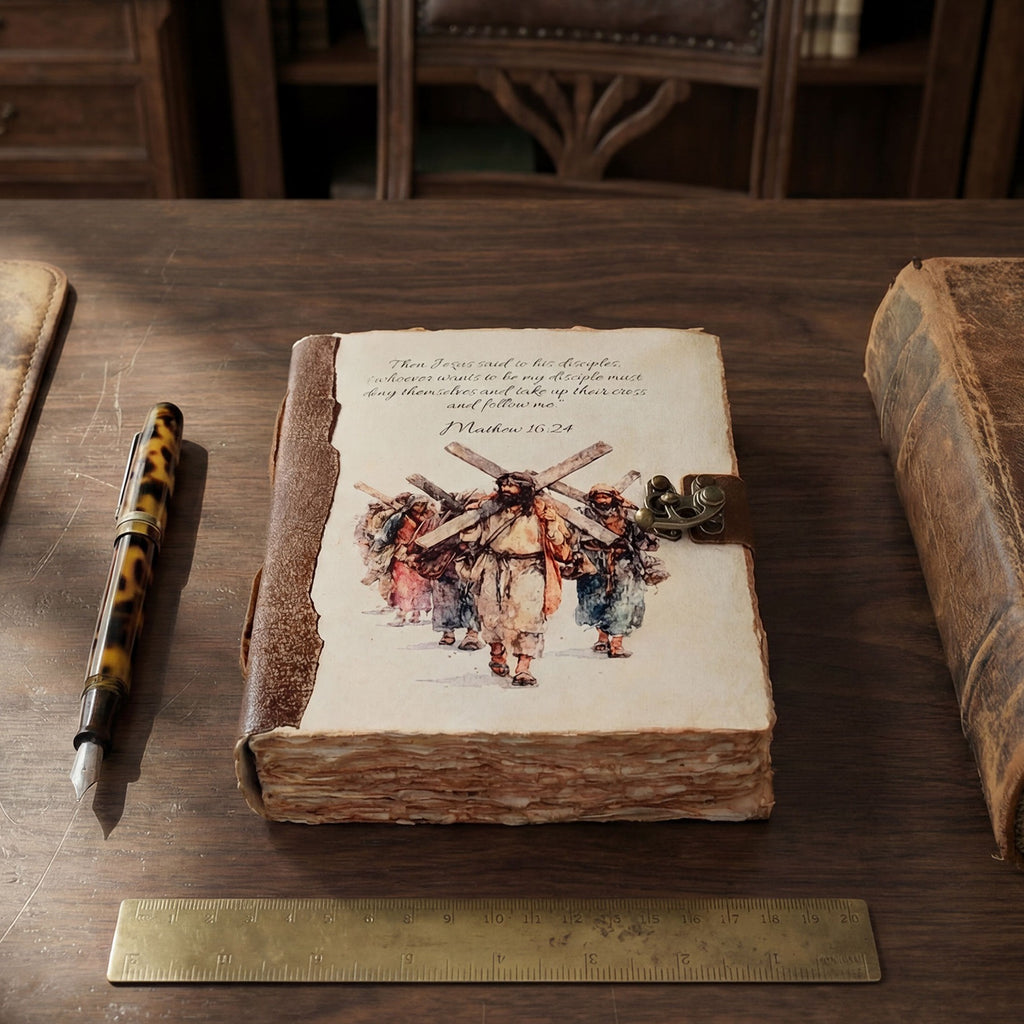 Then Jesus said to his disciples,
"whoever wants to be my disciple must
deny themselves and take up their cross
and follow me."
Mathew 16:24
1 2 3 4 5 6 7 8 9 10 11 12 15 16 17 18 19 20
5 4 3 2 1